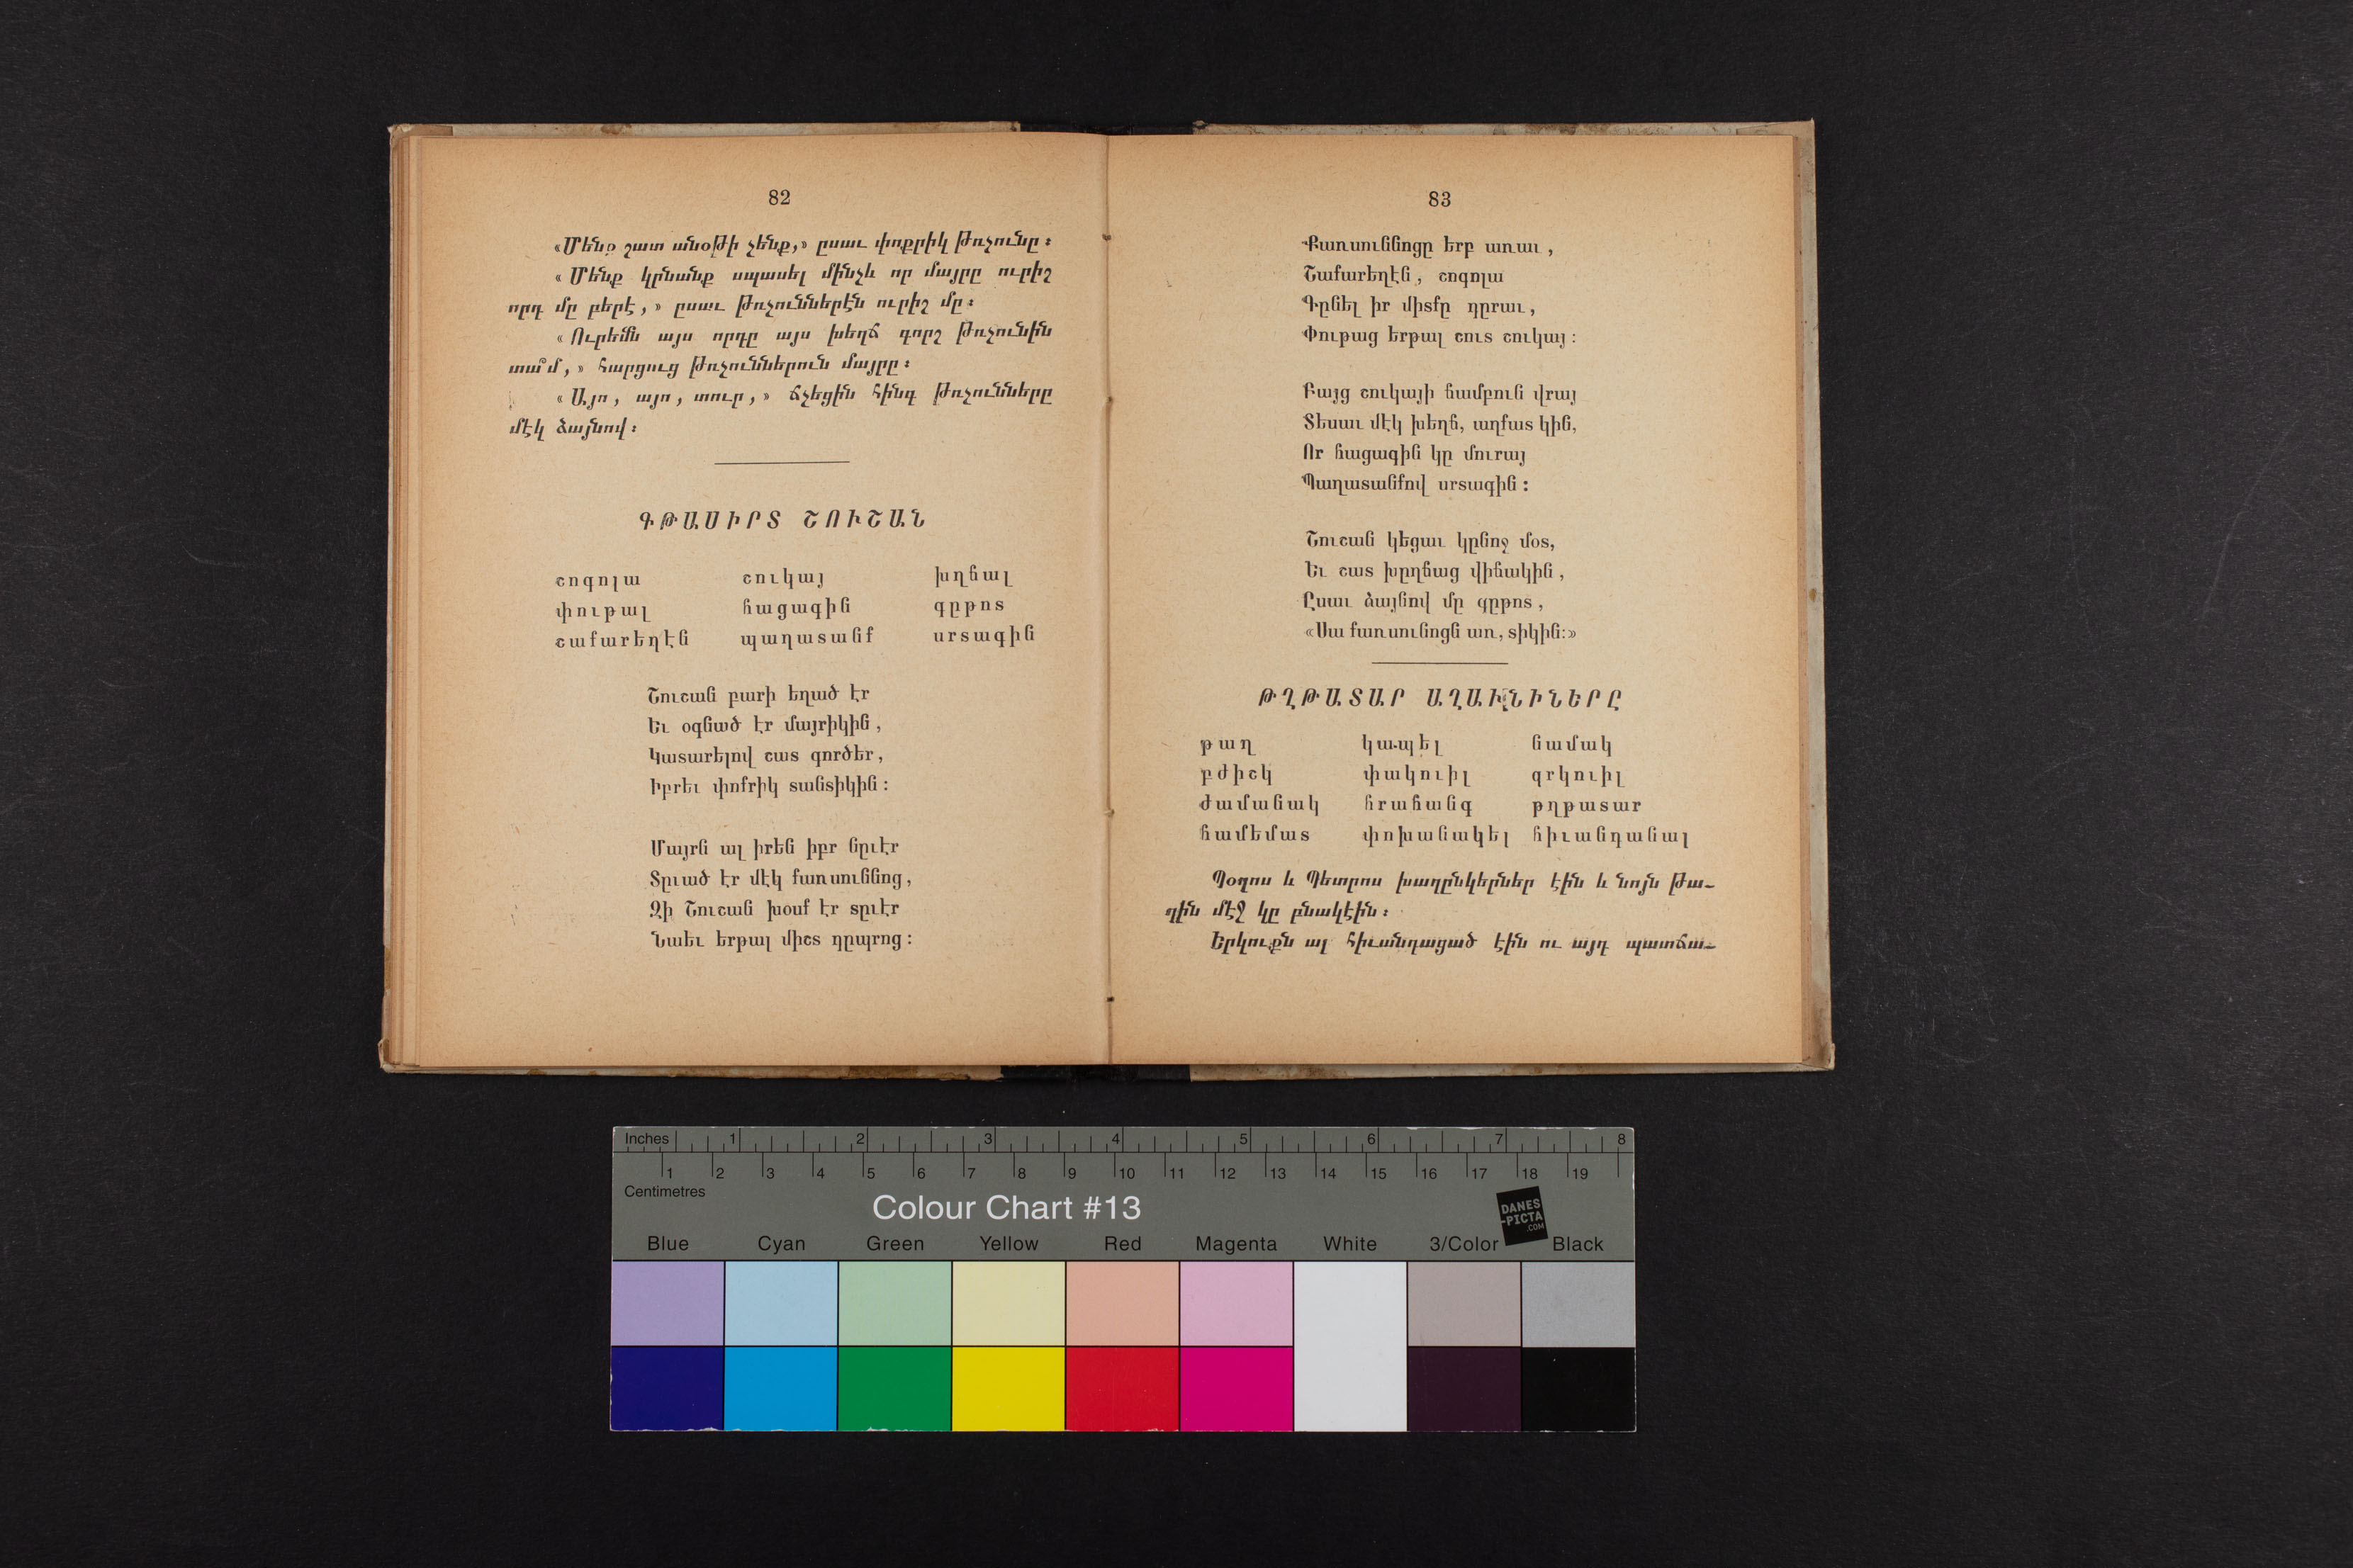 82
«Մենք շատ անօթի չենք,» ըսաւ փոքրիկ թռչունը։
«Մենք կրնանք սպասել մինչև որ մայրը ուրիշ
որդ մը բերէ,» ըսաւ թռչուններէն ուրիշ մը։
«Ուրեմն այս որդը այս խեղճ գորշ թռչունին
տա՞մ,» հարցուց թռչուններուն մայրը։
«Այո, այո, տուր,» ճչեցին հինգ թռչունները
մէկ ձայնով։
ԳԹԱՍԻՐՏ ՇՈՒՇԱՆ
շոգոլա շուկայ խղճալ
փութալ հացագին գըթոտ
շաքարեղէն պաղատանք սրտագին
Շուշան բարի եղած էր
Եւ օգնած էր մայրիկին,
Կատարելով շատ գործեր,
Իբրեւ փոքրիկ տանտիկին։
Մայրն ալ իրեն իբր նըւէր
Տըւած էր մէկ քառսուննոց,
Զի Շուշան խօսք էր տըւէր
Նաեւ երթալ միշտ դըպրոց։
83
Քառսուննոցը երբ առաւ,
Շաքարեղէն, շոգոլա
Գընել իր միտքը դըրաւ,
Փութաց երթալ շուտ շուկայ։
Բայց շուկայի ճամբուն վրայ
Տեսաւ մէկ խեղճ, աղքատ կին,
Որ հացագին կը մուրայ
Պաղատանքով սրտագին։
Շուշան կեցաւ կընոջ մօտ,
Եւ շատ խըղճաց վիճակին,
Ըսաւ ձայնով մը գըթոտ,
«Սա քառսունոցն առ, տիկին։»
ԹՂԹԱՏԱՐ ԱՂԱՒՆԻՆԵՐԸ
թաղ կապել նամակ
բժիշկ փակուիլ զրկուիլ
ժամանակ հրահանգ թղթատար
համեմատ փոխանակել հիւանդանալ
Պօղոս և Պետրոս խաղընկերներ էին և նոյն թա-
ղին մէջ կը բնակէին։
Երկուքն ալ հիւանդացած էին ու այդ պատճա-
Inches 1 2 3 4 5 6 7 8
1 2 3 4 5 6 7 8 9 10 11 12 13 14 15 16 17 18 19
Centimetres
Colour Chart #13
DANES
-PICTA
.COM
Blue Cyan Green Yellow Red Magenta White 3/Color Black